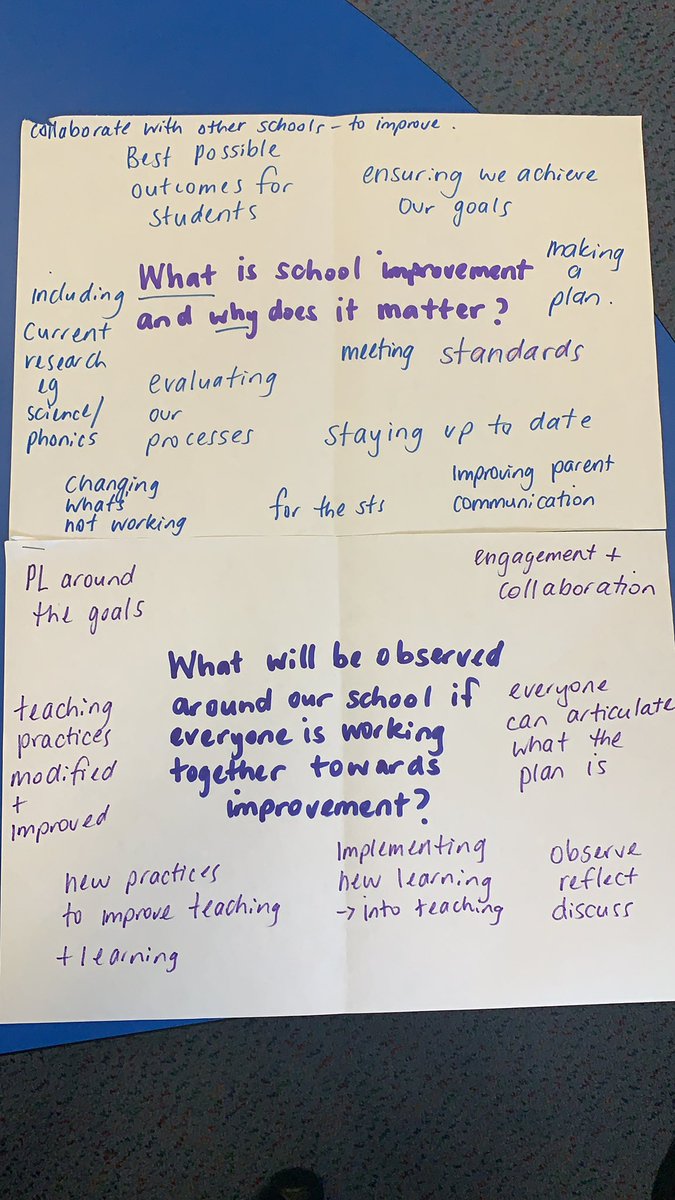 collaborate with other schools - to improve.
Best possible
outcomes for
students
ensuring we achieve
our goals
What is school improvement
and why does it matter?
making
a
plan.
including
current
research
eg
science/
phonics
evaluating
our
processes
meeting standards
staying up to date
Changing
whats
not working
for the sts
Improving parent
communication
PL around
the goals
engagement +
collaboration
What will be observed
around our school if
everyone is working
together towards
improvement?
teaching
practices
modified
+
improved
everyone
can articulate
what the
plan is
new practices
to improve teaching
+ learning
Implementing
new learning
→ into teaching
observe
reflect
discuss